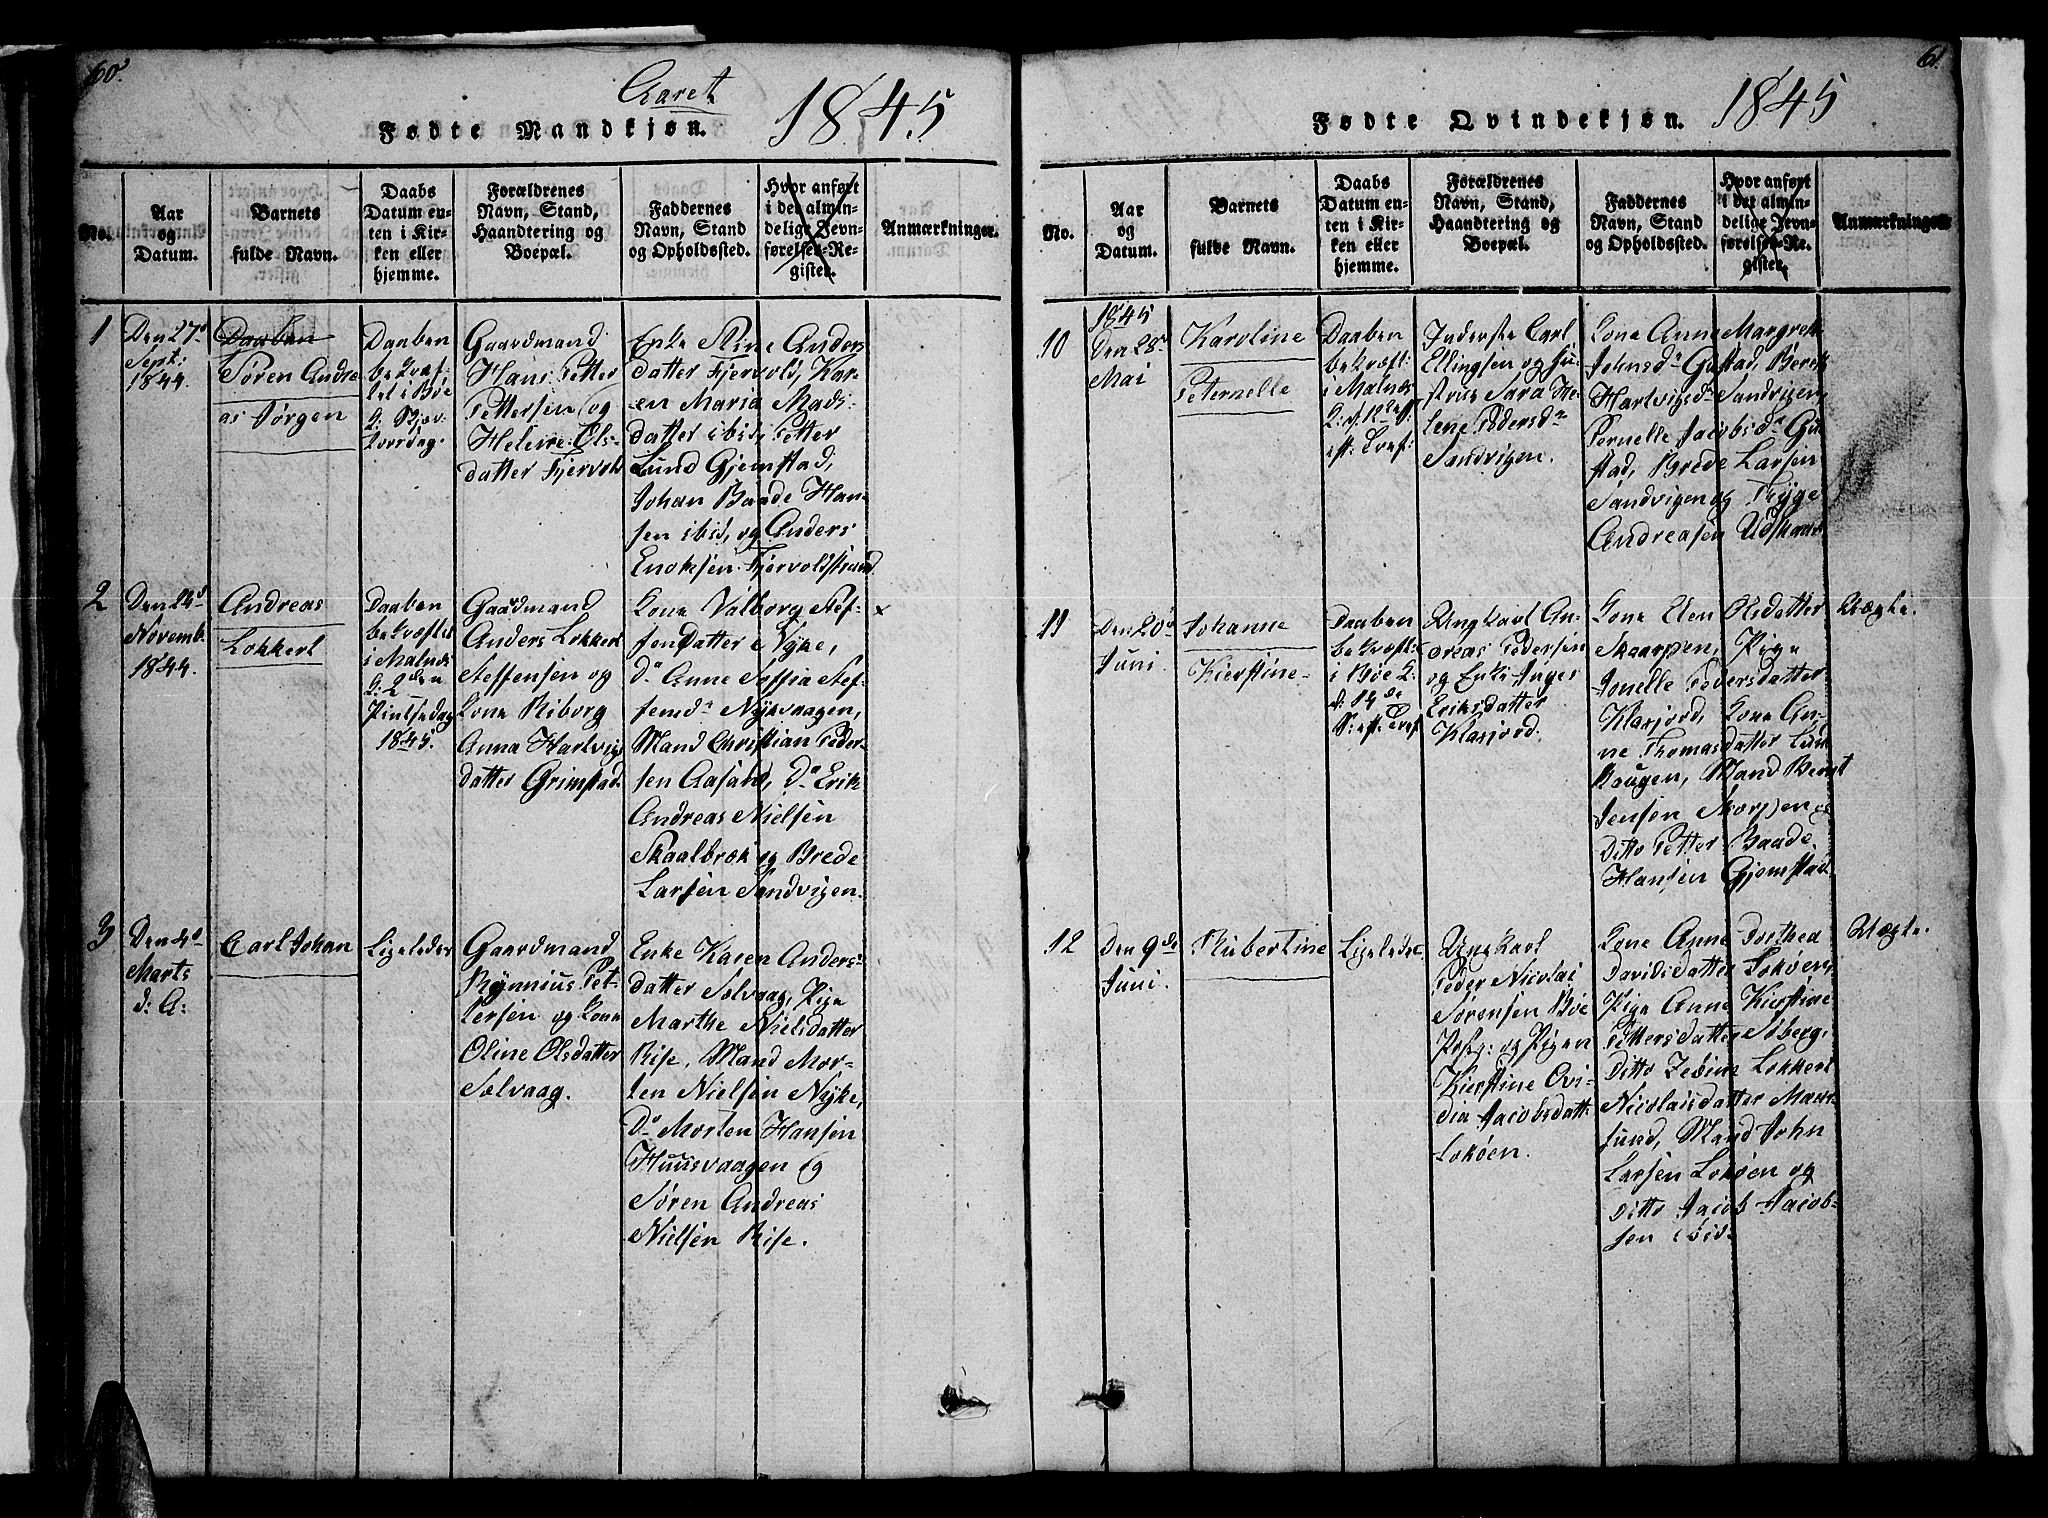 60.
Aaret
1845
Fødte Mandkjøn.
No.
Aar
og
Datum.
Barnets
fulde Navn.
Daabs
Datum en-
ten i Kir-
ken eller
hjemme.
Forældrenes
Navn, Stand,
Haandtering og
Boepæl.
Faddernes
Navn, Stand
og Opholdssted.
Hvor anført
i det almin-
delige Jevn-
førelses-Re-
gister.
Anmærkninger.
1
Den 27d
Sept:
1844
Daaben
Søren Andre-
as Jørgen
Daaben
bekræf-
tet i Bøe
Gaardmand
Hans Petter
Pettersen og
Helene Ols-
datter Fjervold
Enke Stine Anders
datter Fjervold, Kar-
en Maria Mads-
datter ibid, Petter
Lund Gjemstad,
Johan Baade Han-
sen ibid, og Anders
Enoksen Fjervoldstrand
2
Den 24d
Novemb.
1844.
Andreas
Lokkert
Daaben
bekræftet
i Malnes
K: 2den
Pintsedag
1845.
Gaardmand
Anders Lokkert
Steffensen og
Kone Riborg
Anna Hartvigs
datter Grimstad
Kone Valborg Stef-
fendatter Nyke,
do Anne Soffia Stef-
fensdr Nykvaagen,
Mand Christian Peder-
sen Aasand, do Erik
Andreas Nielsen
Skaalbræk og Brede
Larsen Sandvigen.
x
3
Den 4d
Marts
d: A:
Carl Johan
Ligeledes
Gaardmand
Rynnius Pet-
tersen og Kone
Oline Olsdatter
Sølvaag.
Enke Karen Anders-
datter Sølvaag, Pige
Marthe Nielsdatter
Rise, Mand Mor-
ten Nielsen Nyke,
Do Morten Hansen
Huusvaagen og
Søren Andreas
Nielsen Rise.
61.
Fødte Qvindekjøn.
1845
No.
Aar
og
Datum.
Barnets
fulde Navn.
Daabs
Datum en-
ten i Kir-
ken eller
hjemme.
Forældrenes
Navn, Stand,
Haandtering og
Boepæl.
Faddernes
Navn, Stand
og Opholdssted.
Hvor anført
i det almin-
delige Jevn-
førelses-Re-
gister.
Anmærkninger.
10
1845
Den 28d
Mai
Karoline
Peternelle
Daaben
bekræft:
i Malnes
Inderste Carl
Ellingsen og Hu-
strue Sara He-
lene Pedersdr
Sandvigen.
Kone Anne Margreth
Johnsdr Gustad, Berit
Hartvigsdr Sandvigen,
Pernelle Jacobsdr Gu-
stad, Brede Larsen
Sandvigen og Thyge
Andreasen Udskaar
11
Den 20d
Juni.
Johanne
Kierstine
Daaben
bekræft:
i Bøe K.
Ungkarl An-
dreas Pedersen
og Enke Inger
Eriksdatter
Klasjord.
Kone Elen Olsdatter
Skaarpen, Pige
Jonelle Pedersdatter
Klasjord, Kone An-
ne Thomasdatter Lun-
haugen, Mand Bernt
Jensen Skorpen og
Ditto Petter Baade
Hansen Gjemstad
Uægte.
12
Den 9de
Juni.
Rubertine
Ligeledes
Ungkarl
Peder Nicolai
Sørensen Bøe
Præstg: og Pigen
Kierstine Ovi-
dia Jacobsdatt:
Lokøen.
Kone Anne Dorthea
Davidsdatter Lokøen,
Pige Anne Kierstine
Pettersdatter Søberg,
Ditto Zedine Lokkert
Nicolaisdatter
sund, Mand John
Larsen Lokøen og
Ditto Jacob Jacob-
sen ibid.
Uægte.